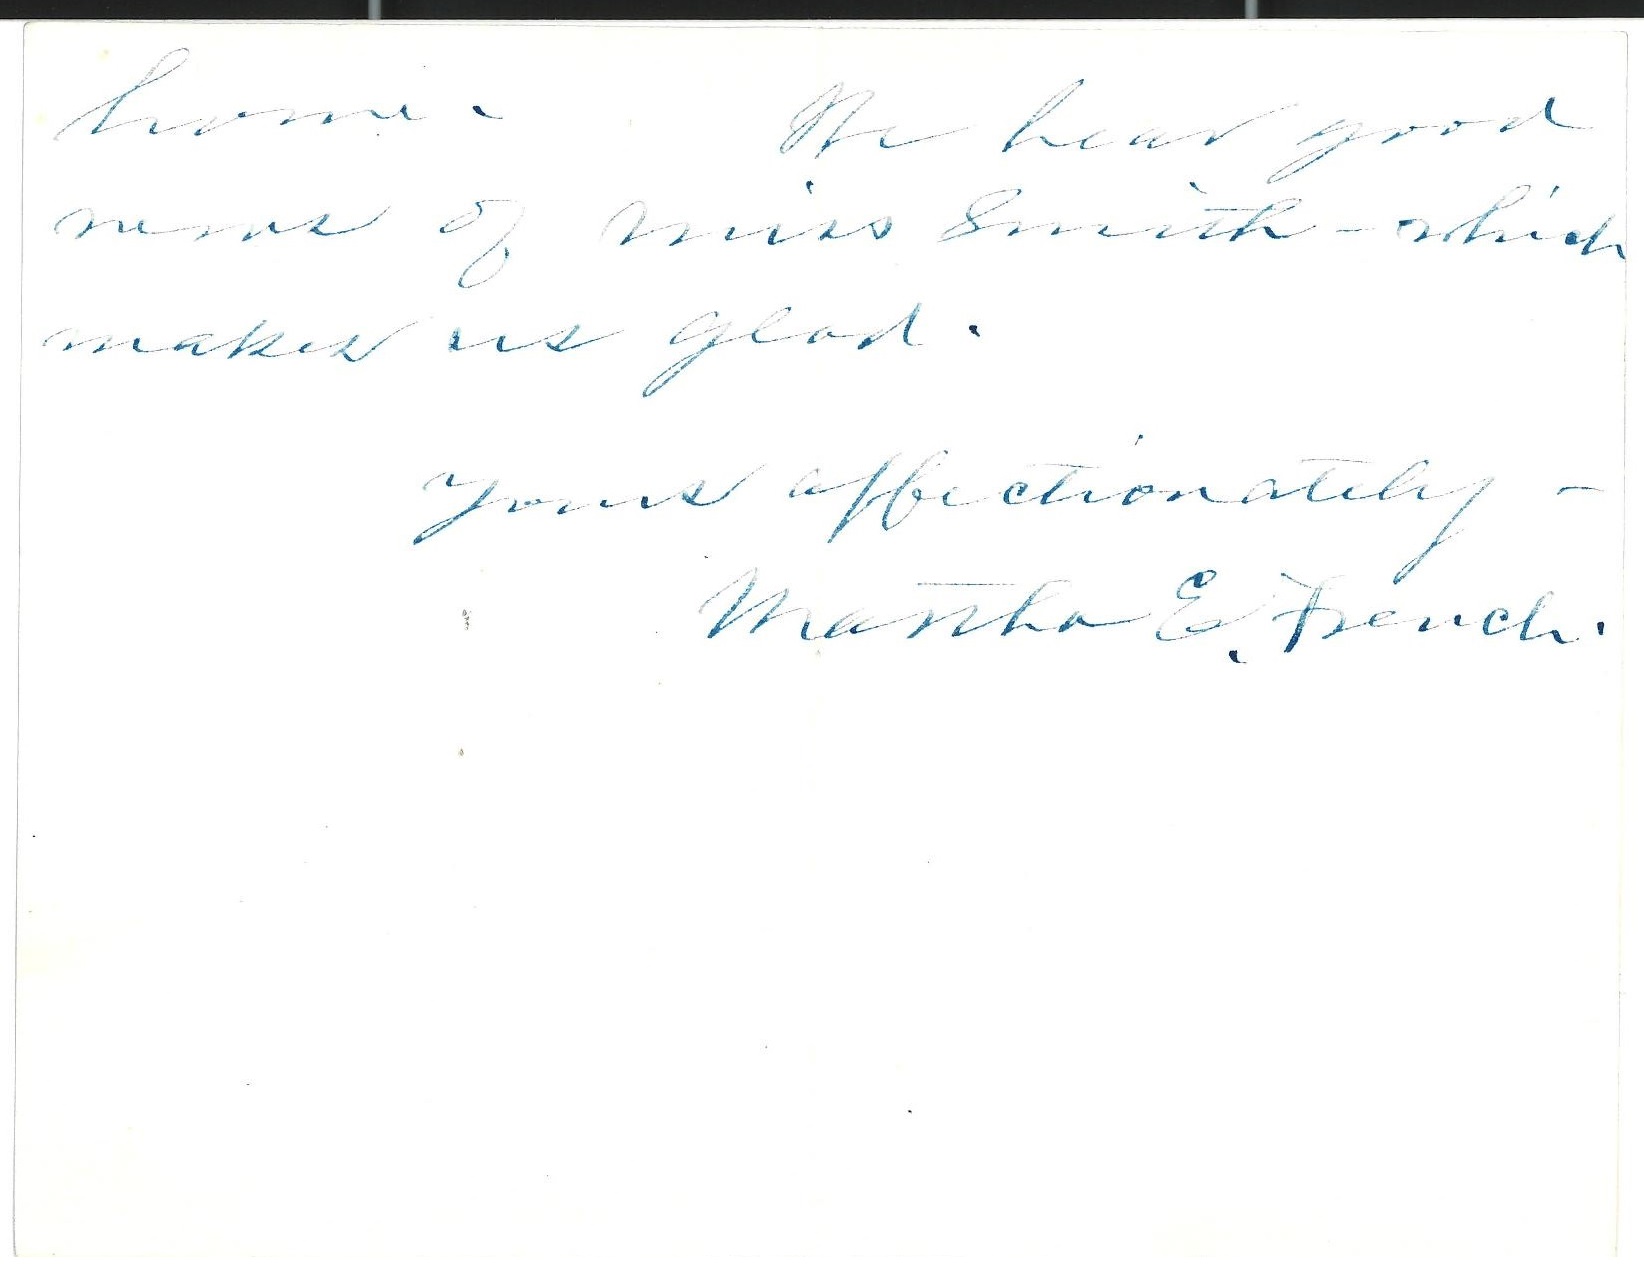 home. We hear good
news of Miss Smith - which
makes us glad.
Yours affectionately -
Martha E. French.